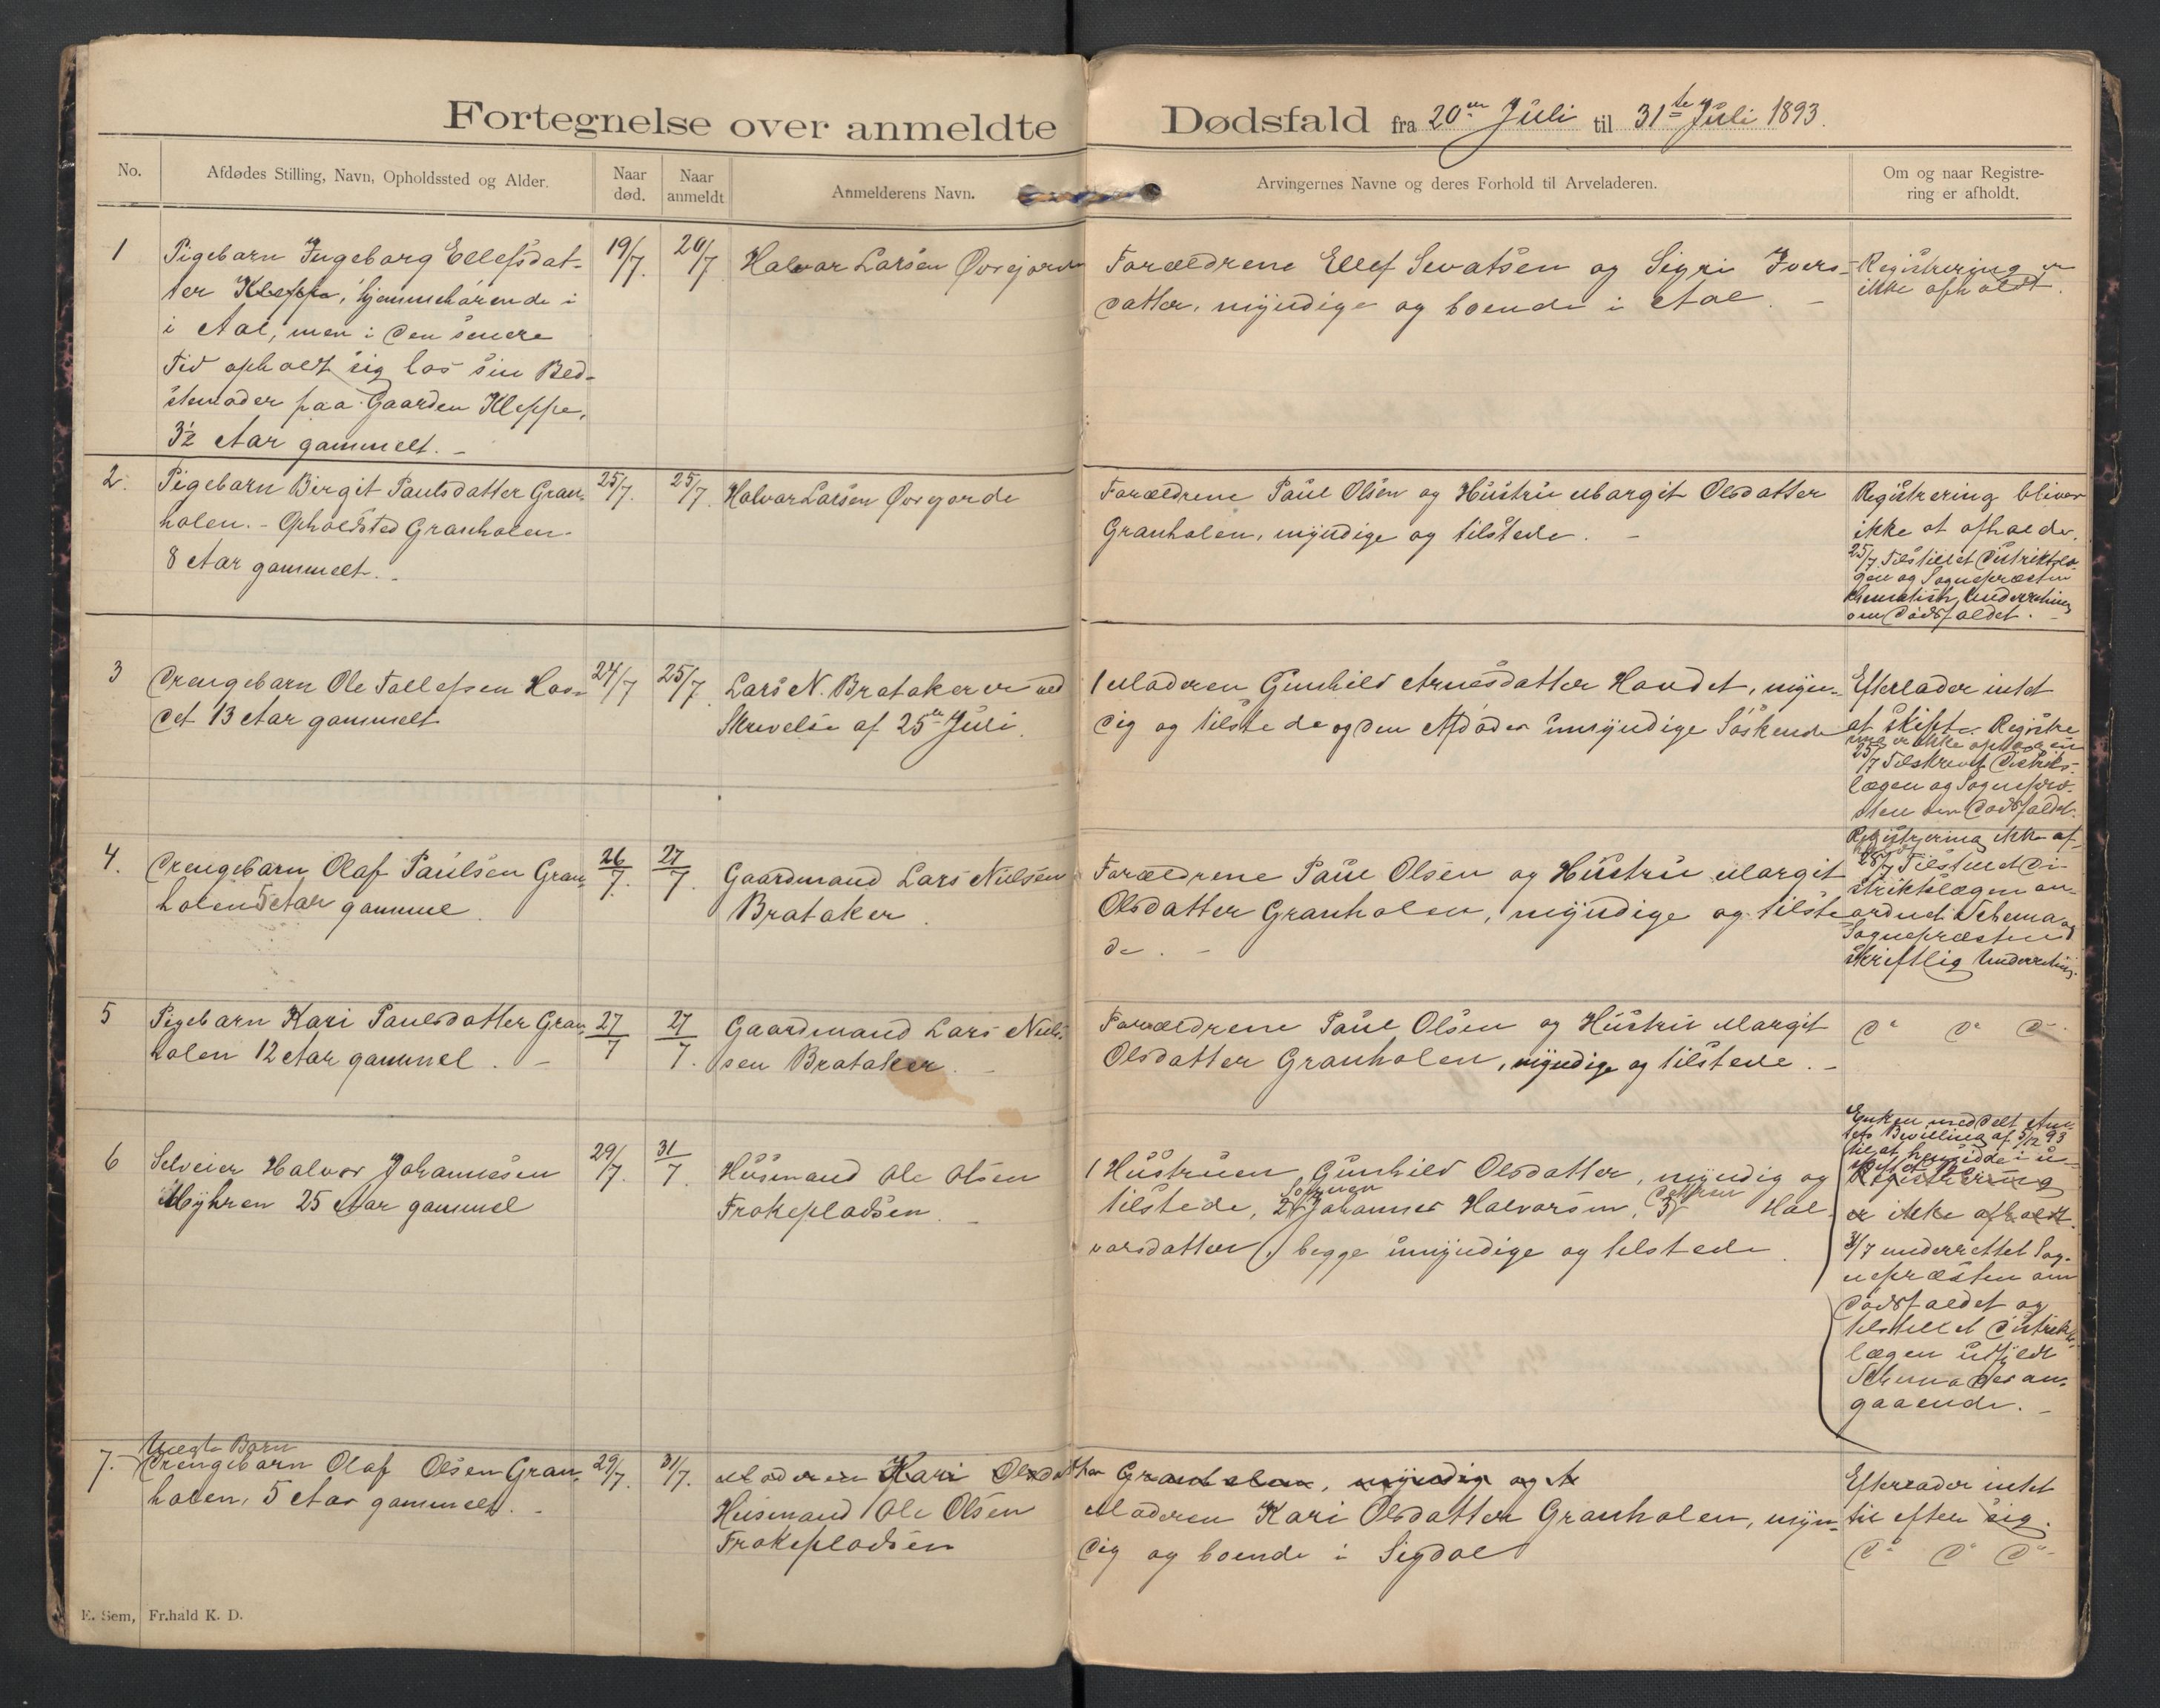 Fortegnelse over anmeldte Dødsfald fra 20de Juli til 31te Juli 1893.
No.
Afdødes Stilling, Navn, Opholdssted og Alder.
Naar død.
Naar anmeldt
Anmelderens Navn.
Arvingernes Navne og deres Forhold til Arveladeren.
Om og naar Registre-
ring er afholdt.
1
Pigebarn Ingeborg Ellefsdat-
ter Kleppe, hjemmehørende i
i Aal, men i den senere
Tid opholdt sig hos sin Bed-
stemoder paa Gaarden Kleppe,
3½ Aar gammelt. -
19/7.
20/7
Halvor Larsen Øvrejorde
Forældrene Ellef Sevatsen og Sigri Ivers-
datter, myndige og boende i Aal. -
Registrering er
ikke afholdt.
2.
Pigebarn Birgit Paulsdatter Gran-
holen. - Opholdsted Granholen.
8 Aar gammelt. -
25/7.
25/7.
Halvor Larsen Øvrejorde
Forældrene Paul Olsen og Hustru Margit Olsdatter
Granholen, myndige og tilstede. -
Registrering bliver
ikke at afholde.
25/7. Tilstillet Distriktslæ-
gen og Sognepræsten
skematisk Underretning
om Dødsfaldet. -
3
Drengebarn Ole Tollefsen Hov-
det 13 Aar gammelt
24/7
25/7.
Lars N. Brataker ved
Skrivelse af 25de Juli.
1 Moderen Gunhild Arnesdatter Hovdet, myn-
dig og tilstede og den Afdødes umyndige Søskende
Efterlader intet
at skifte. Registre
ring er ikke afholden
25/7 Tilskrevet Distrikts-
lægen og Sognepræ-
sten om Dødsfaldet.
4.
Drengebarn Olaf Paulsen Gran-
holen 5 Aar gammel.
26/7.
27/7.
Gaardmand Lars Nielsen
Brataker.
Forældrene Paul Olsen og Hustru Margit
Olsdatter Granholen, myndige og tilste
de. -
Registrering ikke af-
28/7 Tilstillet Di-
striktslægen an-
ordnet Schema og
Sognepræsten
skriftlig Underretning.
5
Pigebarn Kari Paulsdatter Gran-
holen 12 Aar gammel. -
27/7
27/7.
Gaardmand Lars Niel-
sen Brataker. -
Forældrene Paul Olsen og Hustru Margit
Olsdatter Granholen, myndige og tilstede. -
Do Do Do.
6
Selveier Halvor Johannesen
Myhren 25 Aar gammel
29/7.
31/7.
Husmand Ole Olsen
Frokepladsen. -
1 Hustruen Gunhild Olsdatter, myndig og
tilstede, 2 Sønnen Johannes Halvorsen, 3 Datteren Hal
vorsdatter, begge umyndige og tilstede.
Enken meddelt Am-
tets Bevilling af 5/12 93
til at hensidde i u-
skiftet Bo
Registrering
er ikke afholdt.
31/7 underrettet Sog-
nepræsten om
Dødsfaldet og
tilstillet Distrikts-
lægen udfyldt
Schema desan-
gaaende. -
7.
Uægte Barn
Drengebarn Olaf Olsen Gran-
holen, 5 Aar gammelt. -
29/7.
31/7.
Moderen Kari Olsdatter Granholen, myndig og t
Husmand Ole Olsen
Frokepladsen
Moderen Kari Olsdatter Granholen, myn-
dig og boende i Sigdal
Efterlader intet
til efter sig.
Do Do Do
E. Sem, Fr.hald K. D.